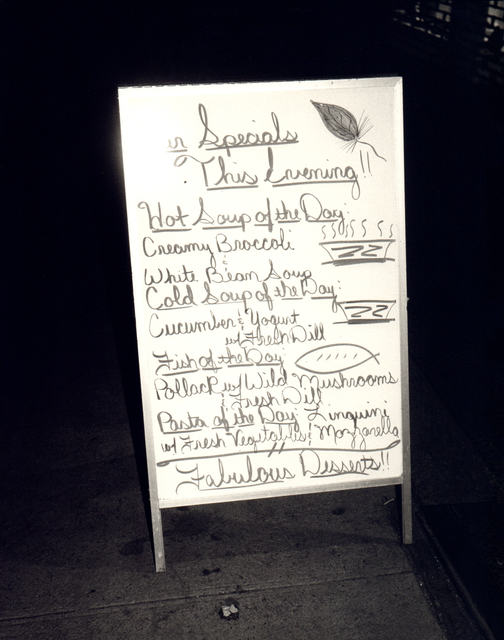 ur Specials
This Evening!!
Hot Soup of the Day:
Creamy Broccoli
&
White Bean Soup
Cold Soup of the Day:
Cucumber & Yogurt
w/ Fresh Dill
Fish of the Day:
Pollack w/ Wild Mushrooms
& Fresh Dill
Pasta of the Day: Linguini
w/ Fresh Vegetables & Mozzarella
Fabulous Desserts!!